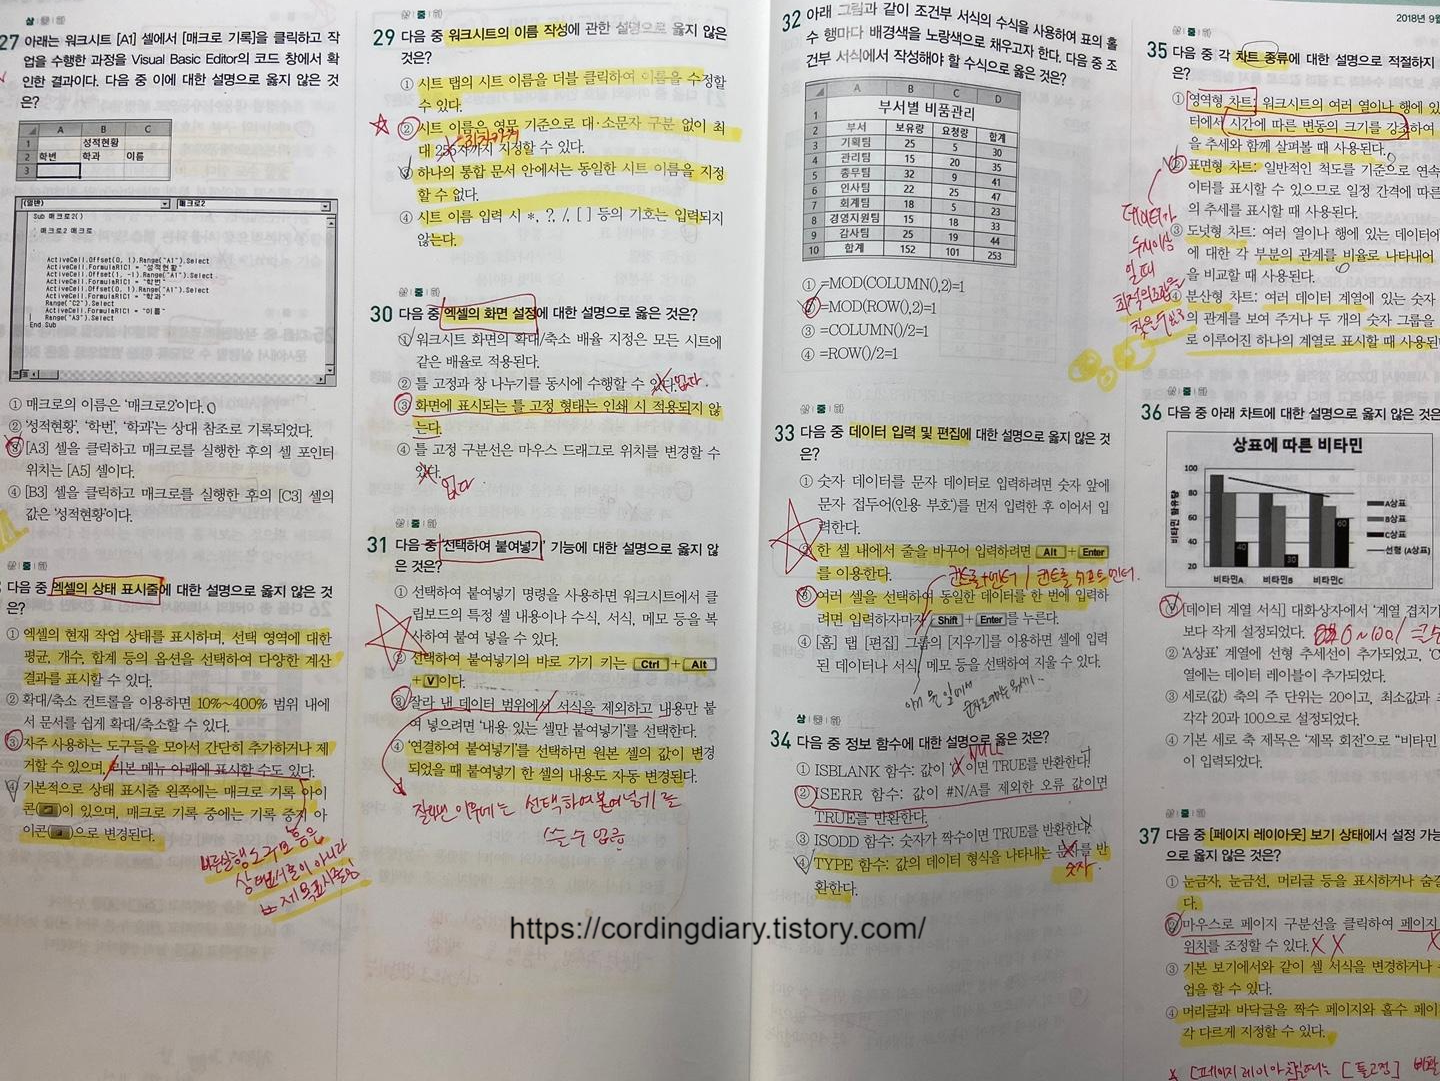 상 중 하
27 아래는 워크시트 [A1] 셀에서 [매크로 기록]을 클릭하고 작
업을 수행한 과정을 Visual Basic Editor의 코드 창에서 확
인한 결과이다. 다음 중 이에 대한 설명으로 옳지 않은 것
은?
A B C
1 성적현황
2 학번 학과 이름
3
(일반) 매크로2
Sub 매크로2()
' 매크로2 매크로
ActiveCell.Offset(0, 1).Range("A1").Select
ActiveCell.FormulaR1C1 = "성적현황"
ActiveCell.Offset(1, -1).Range("A1").Select
ActiveCell.FormulaR1C1 = "학번"
ActiveCell.Offset(0, 1).Range("A1").Select
ActiveCell.FormulaR1C1 = "학과"
Range("C2").Select
ActiveCell.FormulaR1C1 = "이름"
Range("A3").Select
End Sub
① 매크로의 이름은 '매크로2'이다.
② '성적현황', '학번', '학과'는 상대 참조로 기록되었다.
③ [A3] 셀을 클릭하고 매크로를 실행한 후의 셀 포인터
위치는 [A5] 셀이다.
④ [B3] 셀을 클릭하고 매크로를 실행한 후의 [C3] 셀의
값은 '성적현황'이다.
상 중 하
다음 중 엑셀의 상태 표시줄에 대한 설명으로 옳지 않은 것
은?
① 엑셀의 현재 작업 상태를 표시하며, 선택 영역에 대한
평균, 개수, 합계 등의 옵션을 선택하여 다양한 계산
결과를 표시할 수 있다.
② 확대/축소 컨트롤을 이용하면 10%~400% 범위 내에
서 문서를 쉽게 확대/축소할 수 있다.
③ 자주 사용하는 도구들을 모아서 간단히 추가하거나 제
거할 수 있으며, 리본 메뉴 아래에 표시할 수도 있다.
④ 기본적으로 상태 표시줄 왼쪽에는 매크로 기록 아이
콘( )이 있으며, 매크로 기록 중에는 기록 중지 아
이콘( )으로 변경된다.
빠른실행도구모음은
상태표시줄이 아니라
제목표시줄임
상 중 하
29 다음 중 워크시트의 이름 작성에 관한 설명으로 옳지 않은
것은?
① 시트 탭의 시트 이름을 더블 클릭하여 이름을 수정할
수 있다.
② 시트 이름은 영문 기준으로 대·소문자 구분 없이 최
대 255자까지 지정할 수 있다.
③ 하나의 통합 문서 안에서는 동일한 시트 이름을 지정
할 수 없다.
④ 시트 이름 입력 시 *, ?, /, [ ] 등의 기호는 입력되지
않는다.
상 중 하
30 다음 중 엑셀의 화면 설정에 대한 설명으로 옳은 것은?
① 워크시트 화면의 확대/축소 배율 지정은 모든 시트에
같은 배율로 적용된다.
② 틀 고정과 창 나누기를 동시에 수행할 수 있다. 없다.
③ 화면에 표시되는 틀 고정 형태는 인쇄 시 적용되지 않
는다.
④ 틀 고정 구분선은 마우스 드래그로 위치를 변경할 수
있다.
없다
상 중 하
31 다음 중 '선택하여 붙여넣기' 기능에 대한 설명으로 옳지 않
은 것은?
① 선택하여 붙여넣기 명령을 사용하면 워크시트에서 클
립보드의 특정 셀 내용이나 수식, 서식, 메모 등을 복
사하여 붙여 넣을 수 있다.
② 선택하여 붙여넣기의 바로 가기 키는 Ctrl + Alt
+ V이다.
③ 잘라 낸 데이터 범위에서 서식을 제외하고 내용만 붙
여 넣으려면 '내용 있는 셀만 붙여넣기'를 선택한다.
④ '연결하여 붙여넣기'를 선택하면 원본 셀의 값이 변경
되었을 때 붙여넣기 한 셀의 내용도 자동 변경된다.
선택하여붙여넣기를
쓸 수 없음
상 중 하
32 아래 그림과 같이 조건부 서식의 수식을 사용하여 표의 홀
수 행마다 배경색을 노랑색으로 채우고자 한다. 다음 중 조
건부 서식에서 작성해야 할 수식으로 옳은 것은?
A B C D
1 부서별 비품관리
2 부서 보유량 요청량 합계
3 기획팀 25 5 30
4 관리팀 15 20 35
5 총무팀 32 9 41
6 인사팀 22 25 47
7 회계팀 18 5 23
8 경영지원팀 15 18 33
9 감사팀 25 19 44
10 합계 152 101 253
① =MOD(COLUMN(),2)=1
② =MOD(ROW(),2)=1
③ =COLUMN()/2=1
④ =ROW()/2=1
상 중 하
33 다음 중 데이터 입력 및 편집에 대한 설명으로 옳지 않은 것
은?
① 숫자 데이터를 문자 데이터로 입력하려면 숫자 앞에
문자 접두어(인용 부호')를 먼저 입력한 후 이어서 입
력한다.
② 한 셀 내에서 줄을 바꾸어 입력하려면 Alt + Enter
를 이용한다.
컨트롤+엔터 / 컨트롤 시프트 엔터.
③ 여러 셀을 선택하여 동일한 데이터를 한 번에 입력하
려면 입력하자마자 Shift + Enter 를 누른다.
④ [홈] 탭 [편집] 그룹의 [지우기]를 이용하면 셀에 입력
된 데이터나 서식, 메모 등을 선택하여 지울 수 있다.
상 중 하
34 다음 중 정보 함수에 대한 설명으로 옳은 것은?
① ISBLANK 함수: 값이 '0'이면 TRUE를 반환한다.
② ISERR 함수: 값이 #N/A를 제외한 오류 값이면
TRUE를 반환한다.
③ ISODD 함수: 숫자가 짝수이면 TRUE를 반환한다.
④ TYPE 함수: 값의 데이터 형식을 나타내는 문자를 반
환한다.
숫자
2018년 9월
상 중 하
35 다음 중 각 차트 종류에 대한 설명으로 적절하지
은?
① 영역형 차트: 워크시트의 여러 열이나 행에 있
터에서 시간에 따른 변동의 크기를 강조하여
을 추세와 함께 살펴볼 때 사용된다.
② 표면형 차트: 일반적인 척도를 기준으로 연속
이터를 표시할 수 있으므로 일정 간격에 따른
의 추세를 표시할 때 사용된다.
③ 도넛형 차트: 여러 열이나 행에 있는 데이터에
에 대한 각 부분의 관계를 비율로 나타내어
을 비교할 때 사용된다.
④ 분산형 차트: 여러 데이터 계열에 있는 숫자
의 관계를 보여 주거나 두 개의 숫자 그룹을
로 이루어진 하나의 계열로 표시할 때 사용된
데이터가
두개이상
일때
최적의조합을
찾을수있음
상 중 하
36 다음 중 아래 차트에 대한 설명으로 옳지 않은 것은
상표에 따른 비타민
비타민 함유량
100
80
60
40
20
40 30 60
비타민A 비타민B 비타민C
A상표
B상표
C상표
선형 (A상표)
① [데이터 계열 서식] 대화상자에서 '계열 겹치기
보다 작게 설정되었다.
② 'A상표' 계열에 선형 추세선이 추가되었고, 'C
열에는 데이터 레이블이 추가되었다.
③ 세로(값) 축의 주 단위는 20이고, 최소값과 최
각각 20과 100으로 설정되었다.
④ 기본 세로 축 제목은 '제목 회전'으로 "비타민
이 입력되었다.
상 중 하
37 다음 중 [페이지 레이아웃] 보기 상태에서 설정 가능
으로 옳지 않은 것은?
① 눈금자, 눈금선, 머리글 등을 표시하거나 숨길
다.
② 마우스로 페이지 구분선을 클릭하여 페이지
위치를 조정할 수 있다.
③ 기본 보기에서와 같이 셀 서식을 변경하거나
업을 할 수 있다.
④ 머리글과 바닥글을 짝수 페이지와 홀수 페이
각 다르게 지정할 수 있다.
https://cordingdiary.tistory.com/